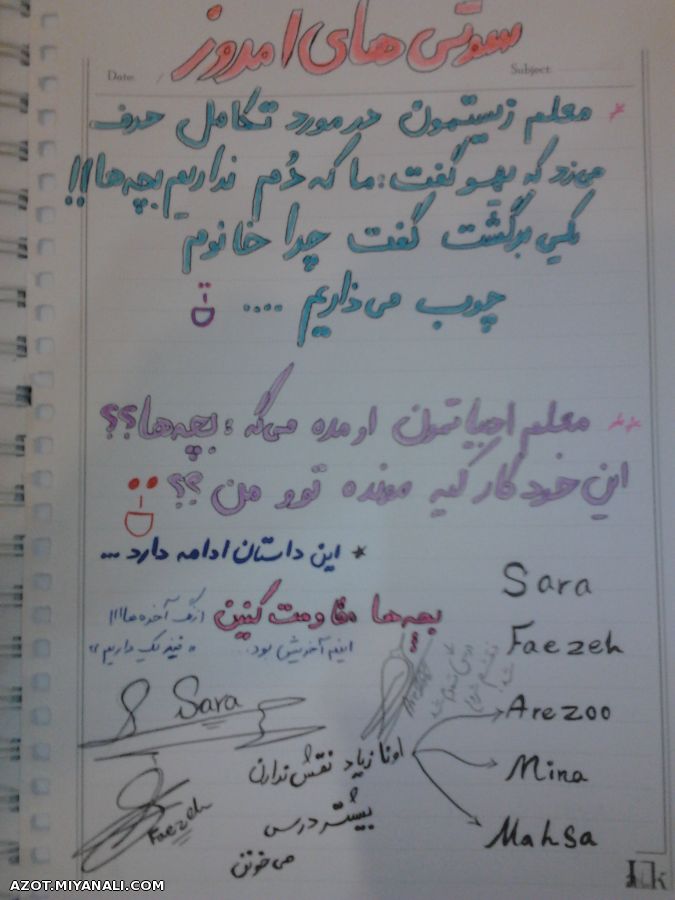 سوتی های امروز
Date: /
Subject:
* معلم زیستمون در مورد تکامل حرف
میزد که یهو گفت: ما که دُم نداریم بچه ها!!!
یکی برگشت گفت چرا خانوم
چوب می ذاریم ....
** معلم ادبیاتمون اومده میگه: بچه ها؟؟
این خودکار کیه مونده توو من ؟؟
* این داستان ادامه دارد ...
بچه ها مقاومت کنین
آخرده !!!!
اینم آخریش بود..
Sara
Faezeh
Arezoo
Mina
Mahsa
Sara
Faezeh
Arezoo
اونا زیاد نقش ندارن
بیشتر درس
می خونن
AZOT.MIYANALI.COM